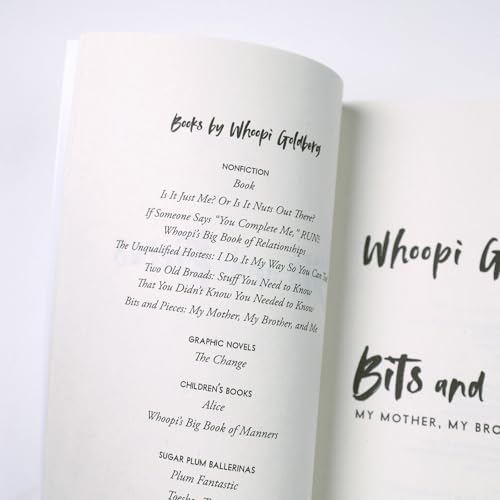 Books by Whoopi Goldberg
NONFICTION
Book
Is It Just Me? Or Is It Nuts Out There?
If Someone Says "You Complete Me," RUN!:
Whoopi's Big Book of Relationships
The Unqualified Hostess: I Do It My Way So You Can Too
Two Old Broads: Stuff You Need to Know
That You Didn't Know You Needed to Know
Bits and Pieces: My Mother, My Brother, and Me
GRAPHIC NOVELS
The Change
CHILDREN'S BOOKS
Alice
Whoopi's Big Book of Manners
SUGAR PLUM BALLERINAS
Plum Fantastic
Whoopi G
Bits and
MY MOTHER, MY BRO